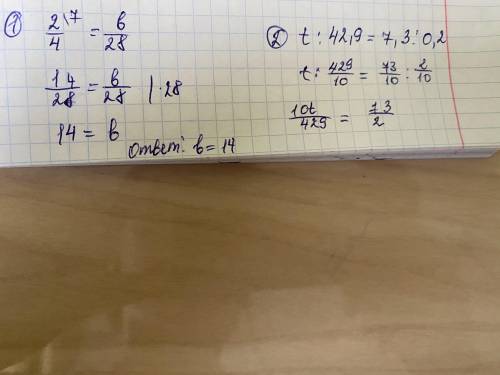 ① 2\7/4 = b/28
14/28 = b/28 | :28
14 = b
Ответ: b = 14
② t : 42,9 = 7,3 : 0,2
t : 429/10 = 73/10 : 2/10
10t/429 = 73/2